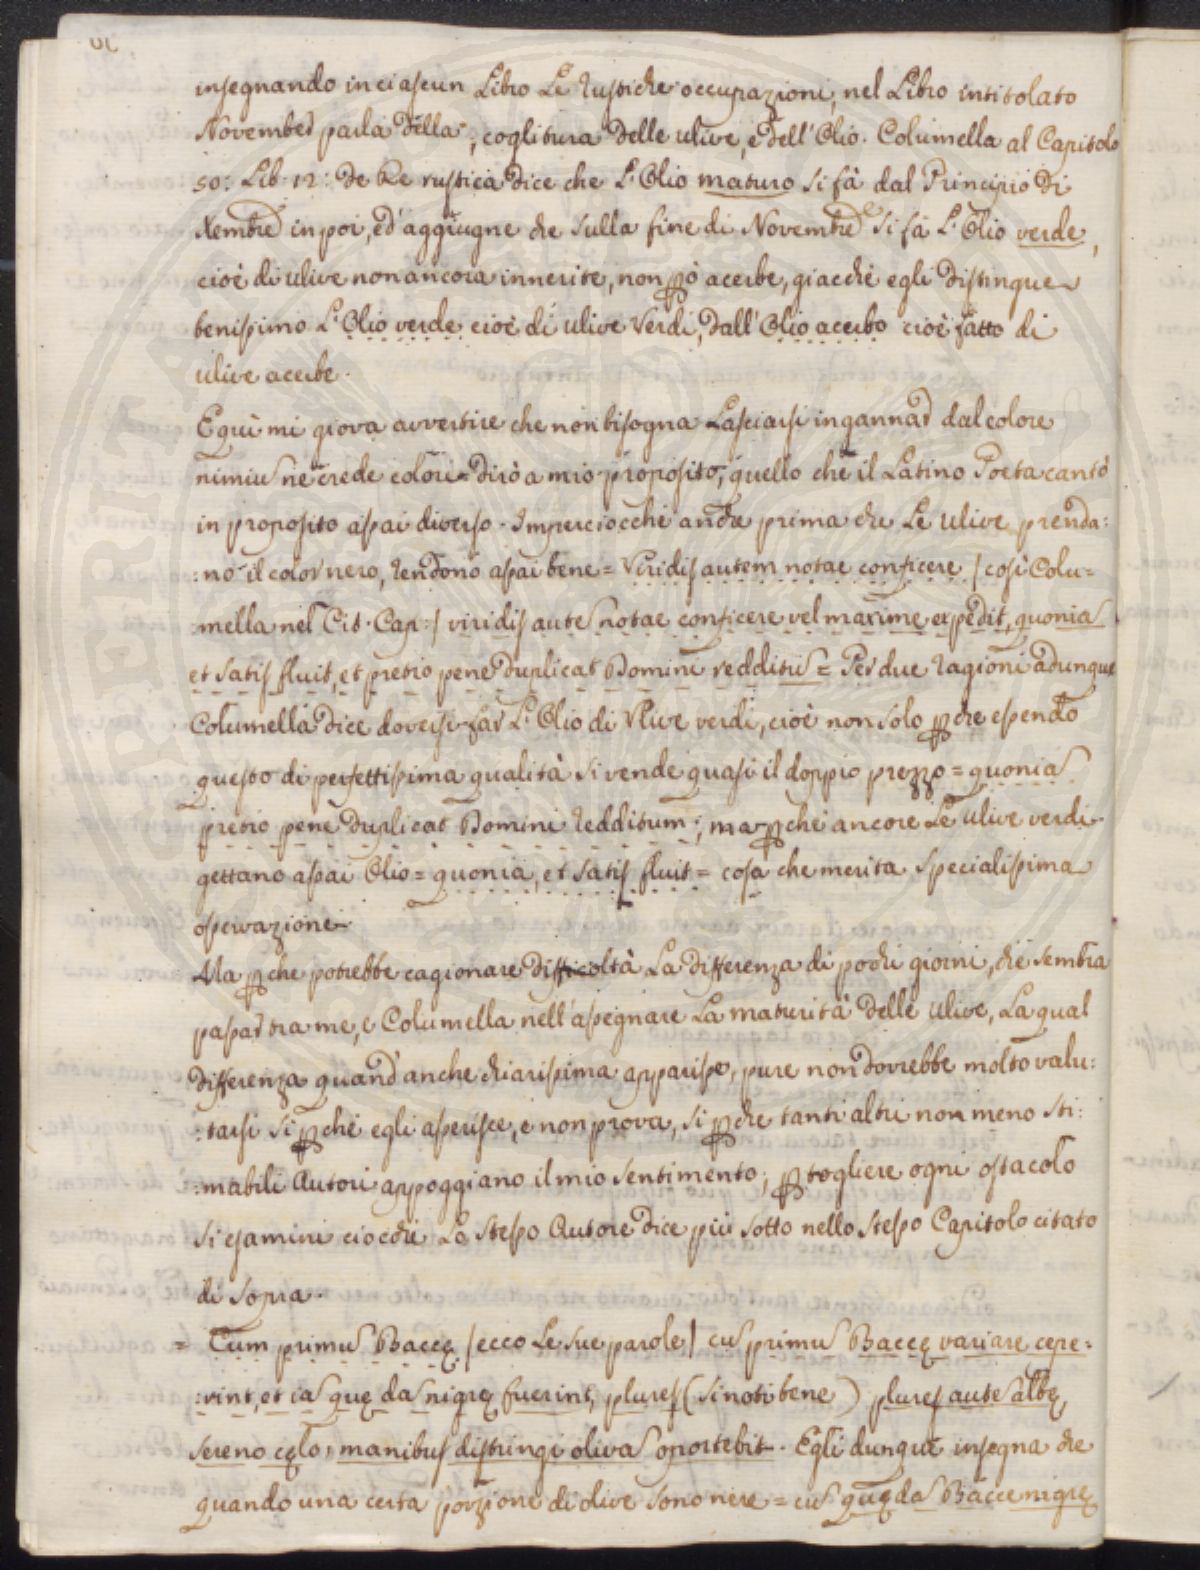 insegnando in ciascun Libro Le rustiche occupazioni, nel Libro intitolato
November parla della coglitura delle ulive, e dell'Olio. Columella al Capitolo
50: Lib. 12: de Re rustica dice che L'Olio maturo si fà dal Principio di
Xembre in poi, ed aggiugne che sulla fine di Novembre si fà L'Olio verde,
cioè di ulive non ancora innerite, non però acerbe, giacchè egli distingue
benissimo L'Olio verde cioè di ulive verdi, dall'Olio acerbo cioè fatto di
ulive acerbe.
E quì mi giova avvertire che non bisogna Lasciarsi ingannar dal colore
nimiũ ne crede colori = dirò a mio proposito, quello che il Latino Poeta cantò
in proposito assai diverso. Imperciocchè anche prima che Le ulive prenda:
:no il color nero, rendono assai bene = Viridis autem notae conficere / così Colu=
:mella nel Cit. Cap: / viridis autẽ notae conficere vel maxime expedit, quoniã
et satis fluit, et pretio pene duplicat Domini redditũ = Per due ragioni adunque
Columella dice doversi far L'Olio di Ulive verdi, cioè non solo pche essendo
questo di perfettissima qualità si vende quasi il doppio prezzo = quoniã
pretio pene duplicat Domini redditum; ma pchè ancora Le ulive verdi
gettano assai Olio = quoniã, et satis fluit = cosa che merita specialissima
osservazione.
Ma pche potrebbe cagionare difficoltà La differenza di pochi giorni, che sembra
passar tra me, e Columella nell'assegnare La maturità delle ulive, La qual
differenza quand'anche chiarissima apparisse, pure non dovrebbe molto valu:
:tarsi sì pchè egli asserisce, e non prova, sì pche tanti altri non meno sti:
:mabili Autori appoggiano il mio sentimento; p togliere ogni ostacolo
si esamini ciocchè Lo stesso Autore dice più sotto nello stesso Capitolo citato
di sopra.
= Cum primũ Baccę / ecco Le sue parole / cũ primũ Baccę variare cepe:
:rint, et iã quędã nigrę fuerint, plures (si noti bene) plures autẽ albę,
sereno cęlo, manibus distringi olivã oportebit. Egli dunque insegna che
quando una certa porzione di olive sono nere = cũ quędã Bacce nigrę